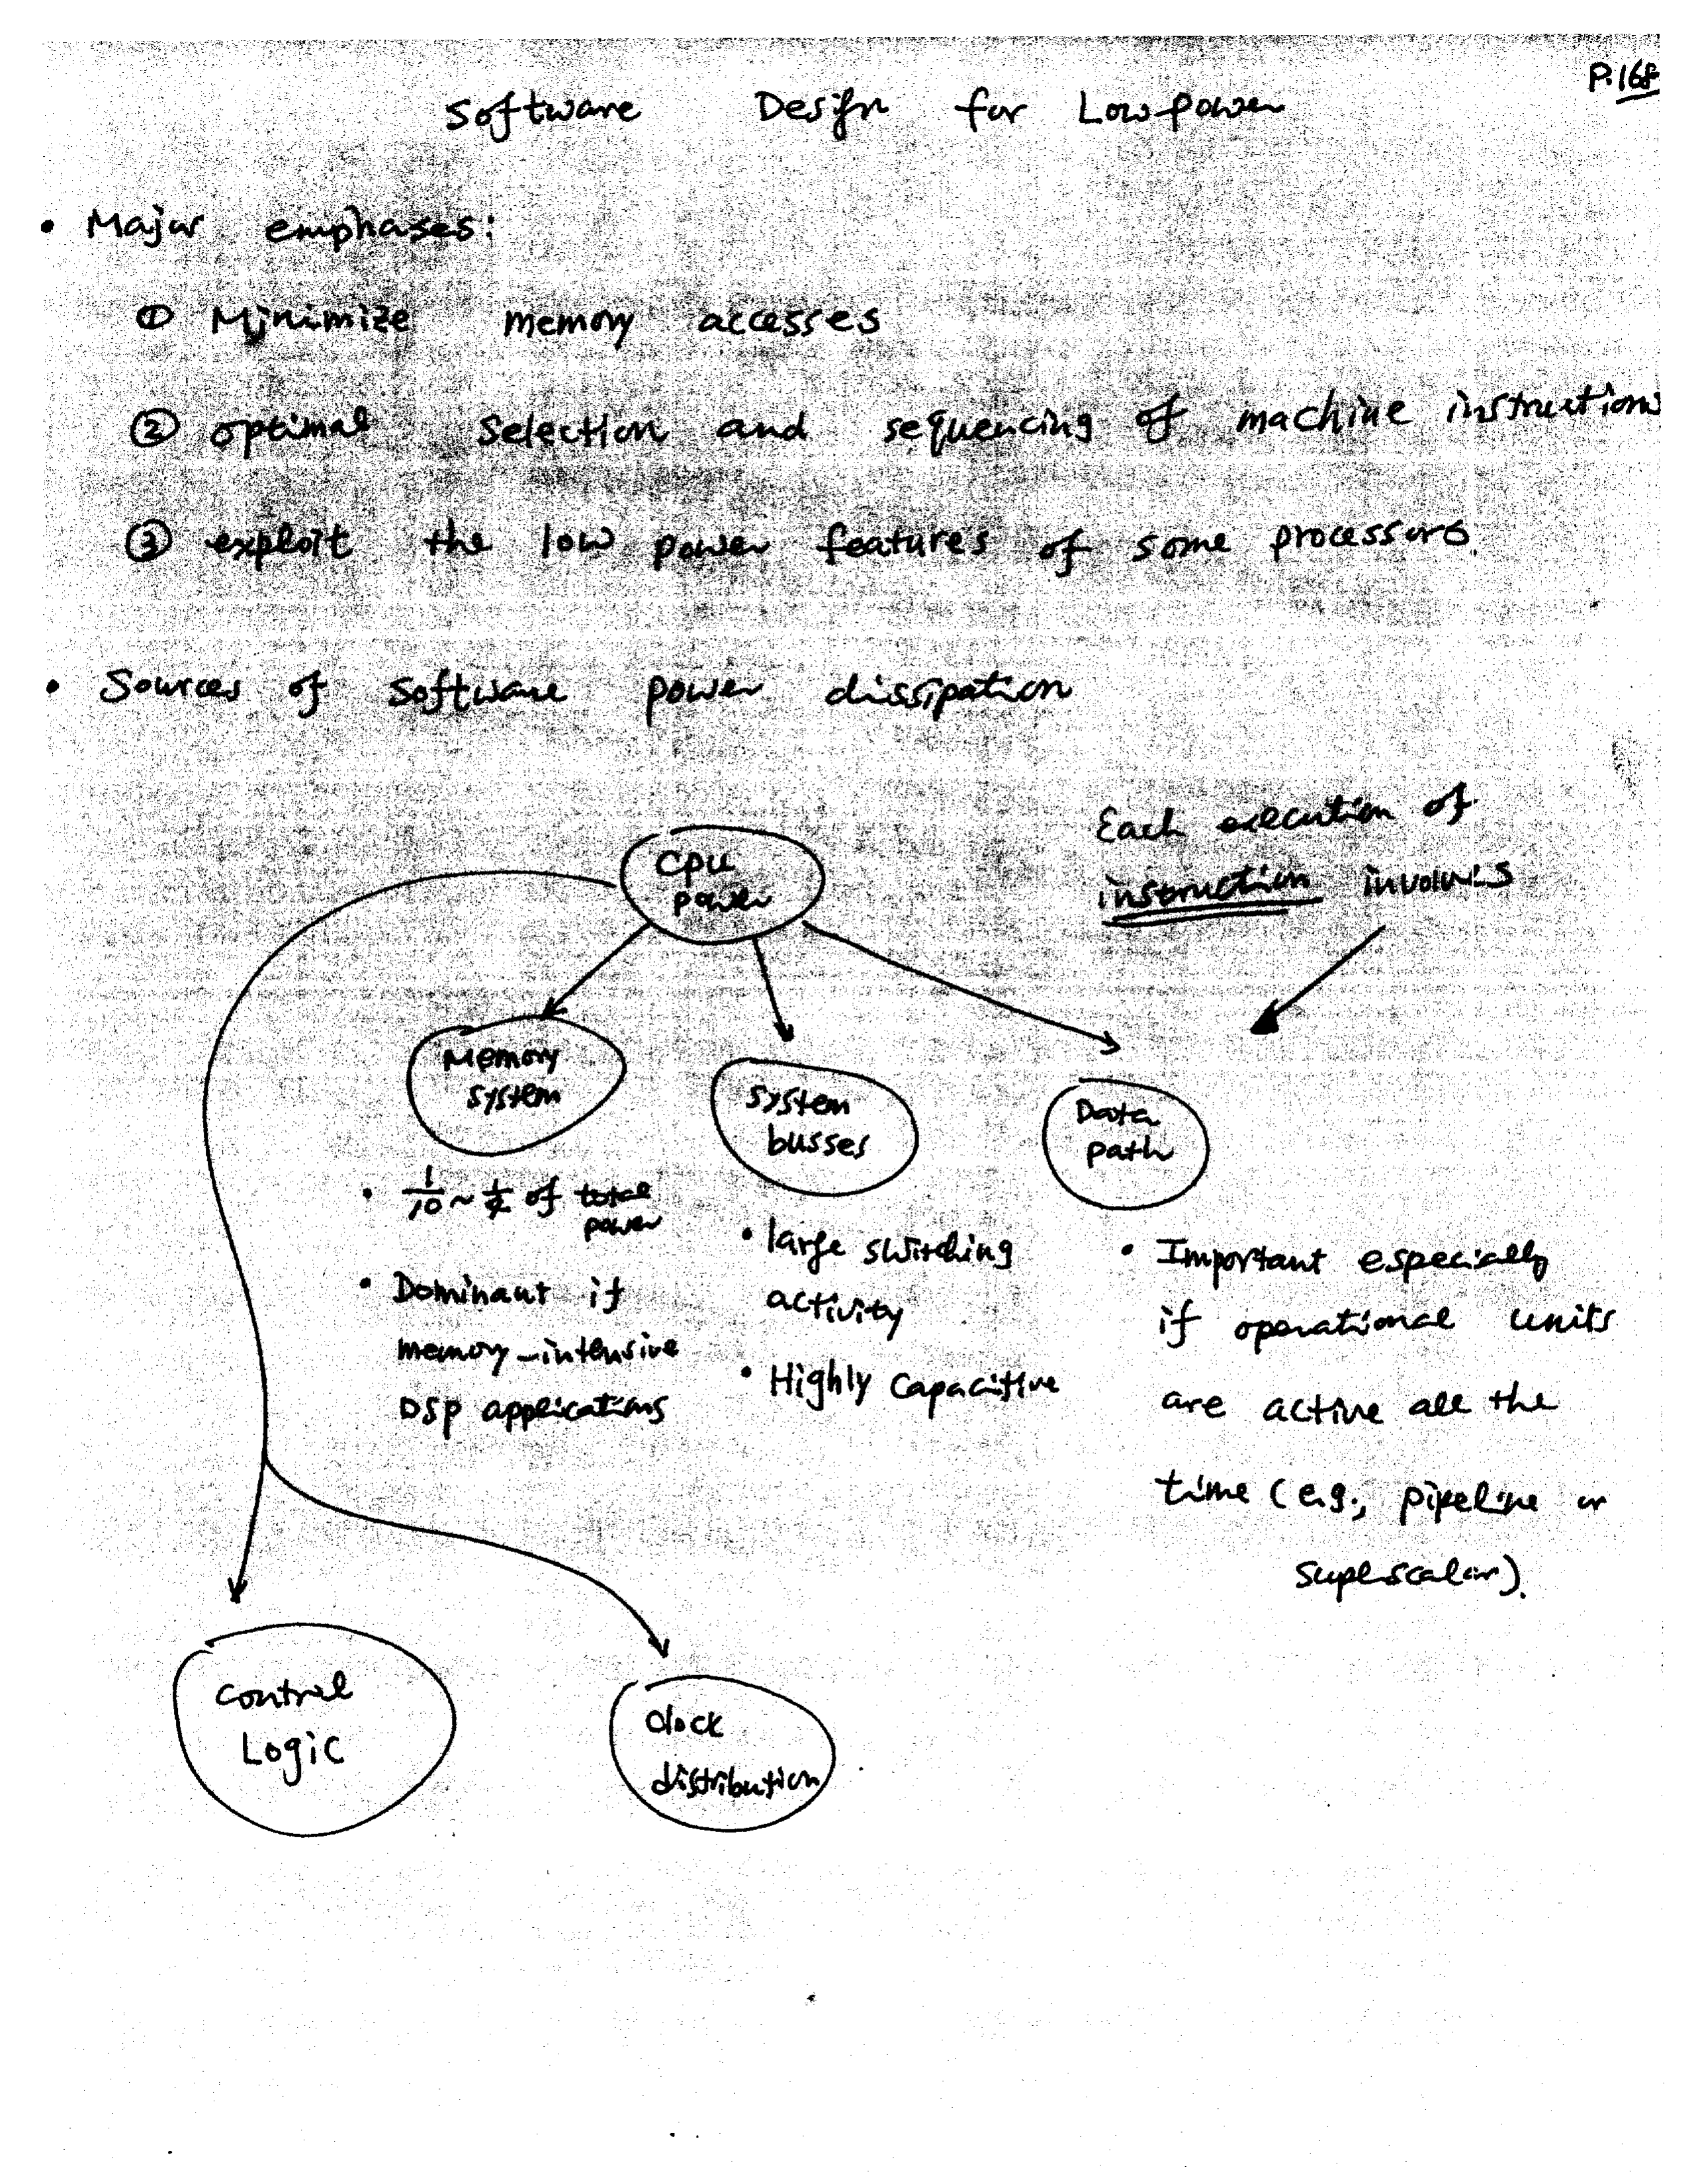 P.168
Software Design for Low power
• Major emphases:
① Minimize memory accesses
② optimal selection and sequencing of machine instructions
③ exploit the low power features of some processors.
• Sources of software power dissipation
Each execution of
instruction involves
CPU
power
Memory
system
System
busses
Data
path
• 1/10 ~ 1/2 of total
power
• Dominant if
memory-intensive
DSP applications
• large switching
activity
• Highly capacitive
• Important especially
if operational units
are active all the
time (e.g., pipeline or
superscalar).
Control
Logic
Clock
distribution